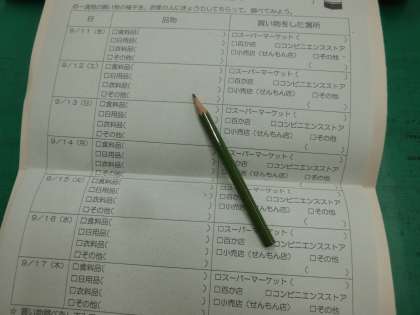 日 品物 買い物をした場所
9/11(金) □食料品( ) □スーパーマーケット( )
□日用品( ) □百か店 □コンビニエンスストア
□衣料品( ) □小売店(せんもん店) □その他
□その他( ) ( )
9/12(土) □食料品( ) □スーパーマーケット( )
□日用品( ) □百か店 □コンビニエンスストア
□衣料品( ) □小売店(せんもん店) □その他
□その他( ) ( )
9/13(日) □食料品( ) □スーパーマーケット( )
□日用品( ) □百か店 □コンビニエンスストア
□衣料品( ) □小売店(せんもん店) □その他
□その他( ) ( )
9/14(月) □食料品( ) □スーパーマーケット( )
□日用品( ) □百か店 □コンビニエンスストア
□衣料品( ) □小売店(せんもん店) □その他
□その他( ) ( )
9/15(火) □食料品( ) □スーパーマーケット( )
□日用品( ) □百か店 □コンビニエンスストア
□衣料品( ) □小売店(せんもん店) □その他
□その他( ) ( )
9/16(水) □食料品( ) □スーパーマーケット( )
□日用品( ) □百か店 □コンビニエンスストア
□衣料品( ) □小売店(せんもん店) □その他
□その他( ) ( )
9/17(木) □食料品( ) □スーパーマーケット( )
□日用品( ) □百か店 □コンビニエンスストア
□衣料品( ) □小売店(せんもん店) □その他
□その他( ) ( )